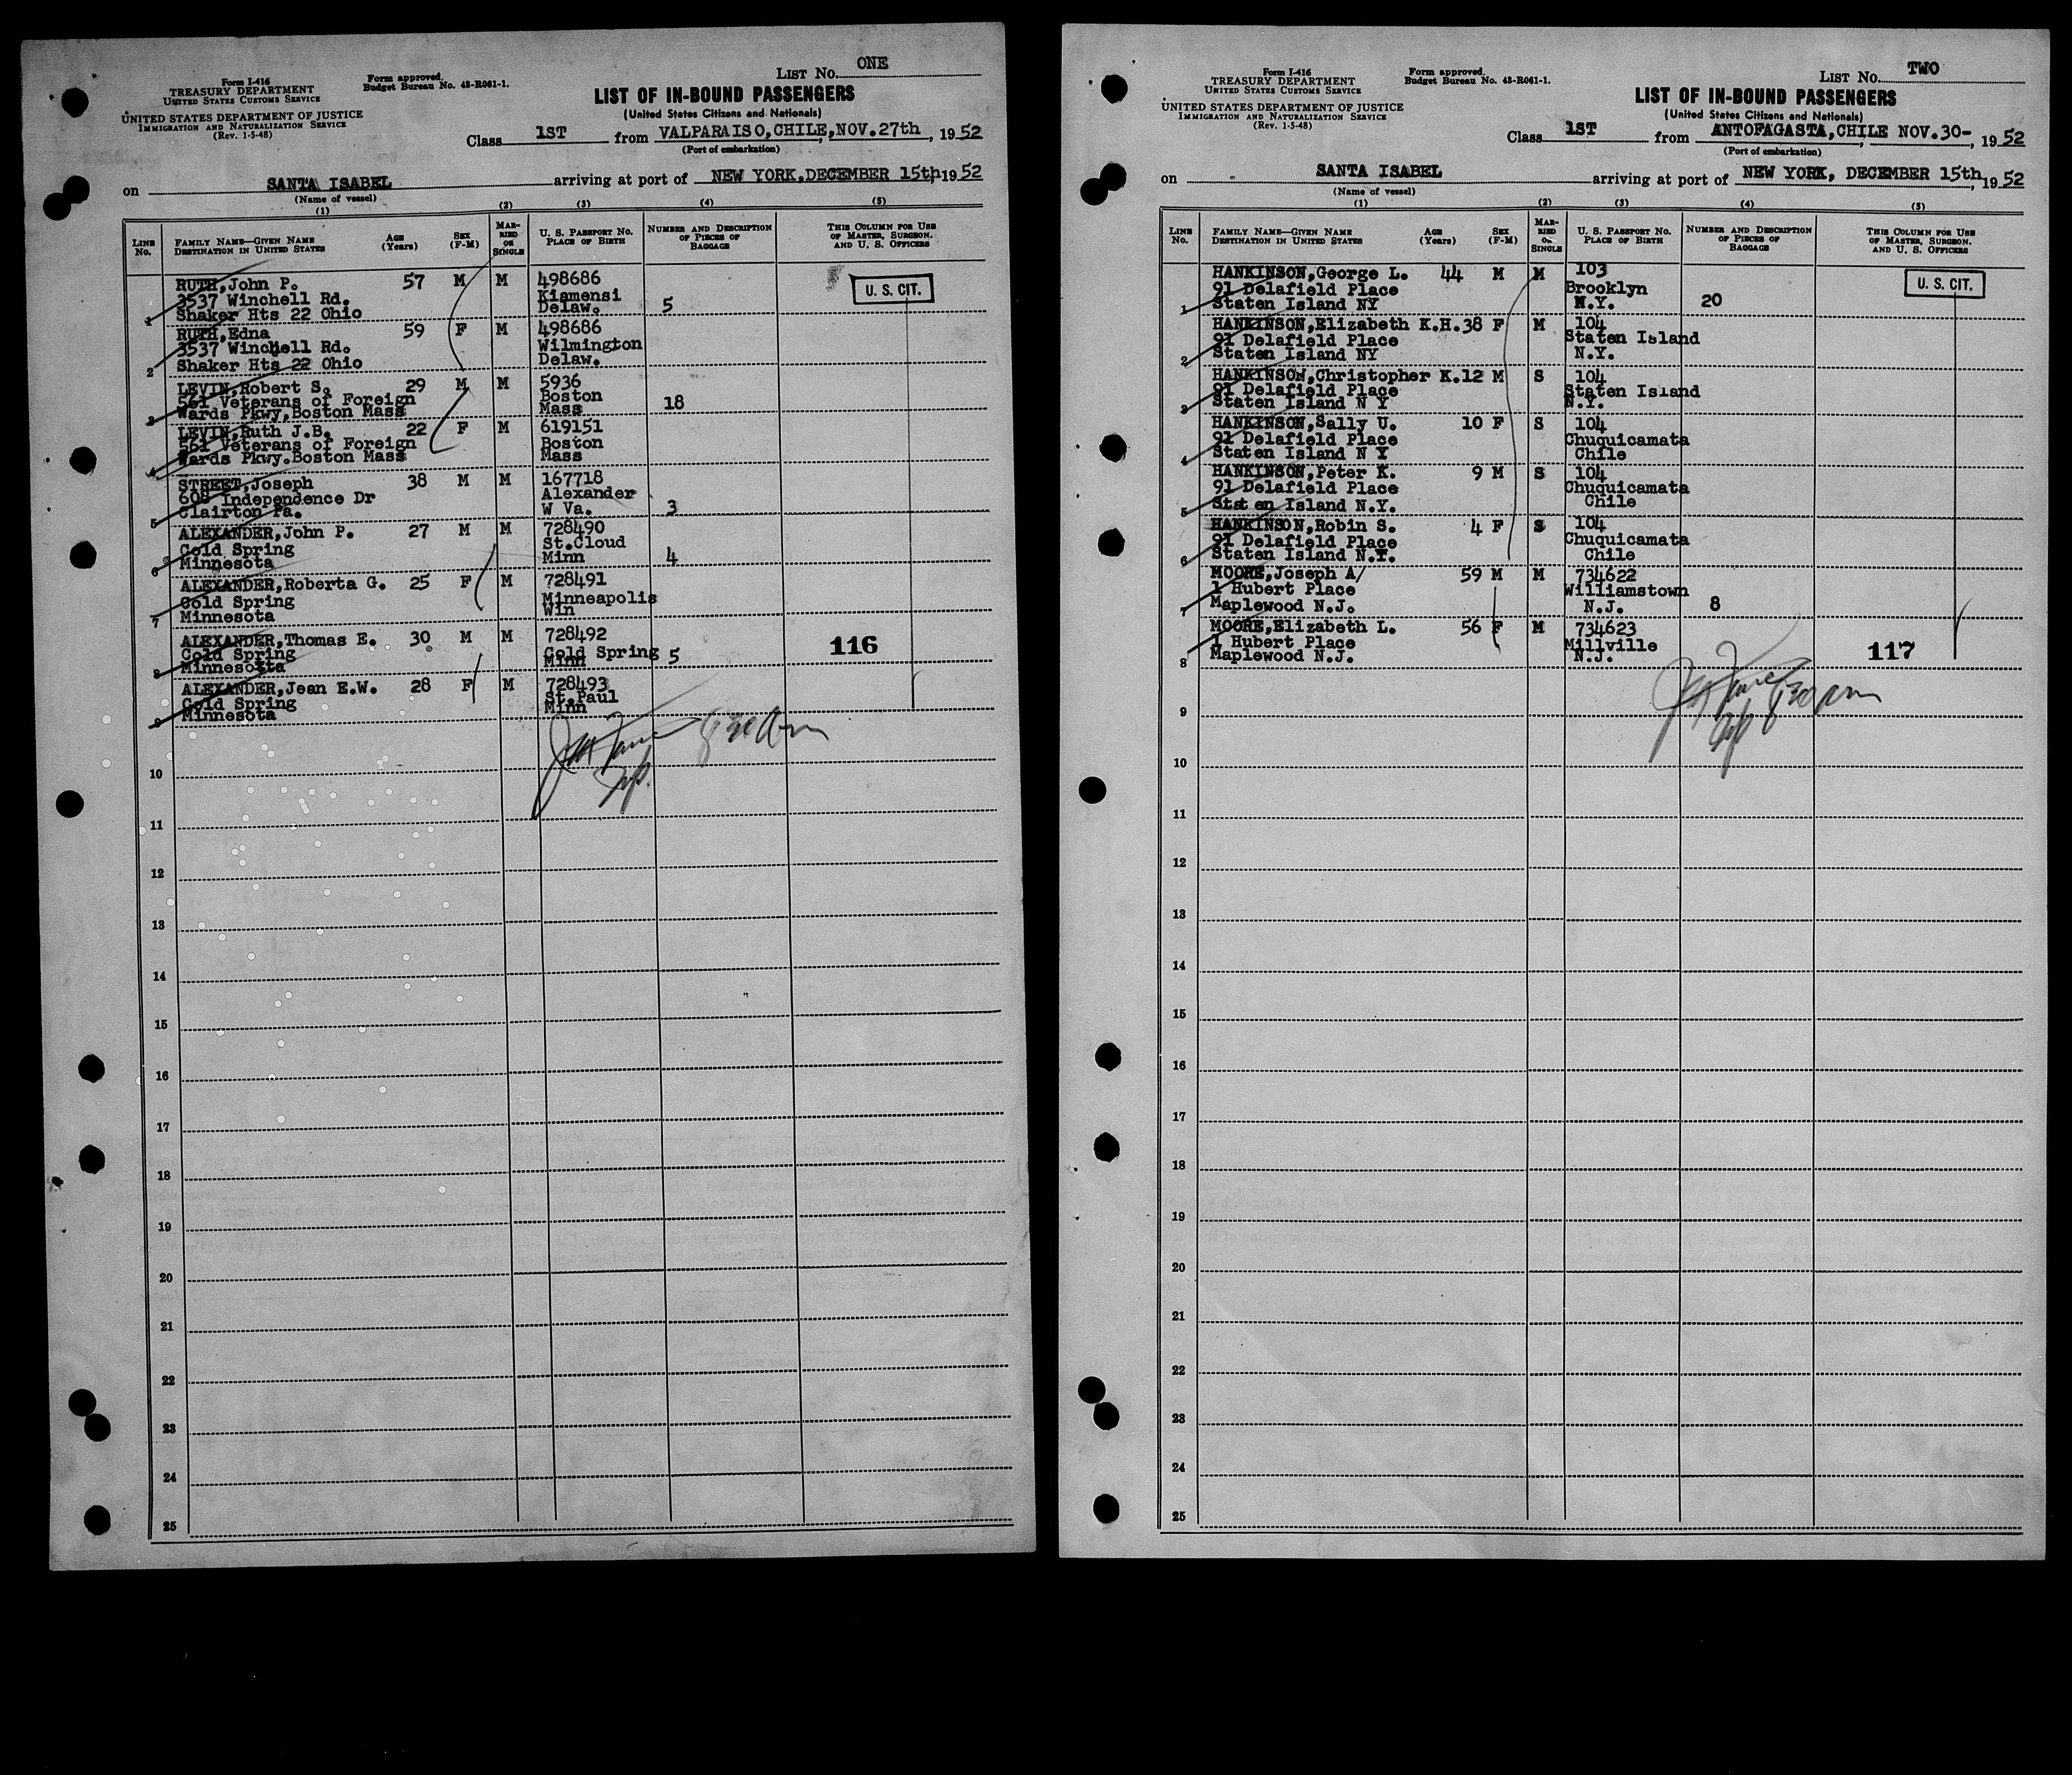 Form I-416
TREASURY DEPARTMENT
UNITED STATES CUSTOMS SERVICE
UNITED STATES DEPARTMENT OF JUSTICE
IMMIGRATION AND NATURALIZATION SERVICE
(Rev. 1-5-48)
Form approved.
Budget Bureau No. 43-R061-1.
LIST No. ONE
LIST OF IN-BOUND PASSENGERS
(United States Citizens and Nationals)
Class 1ST from VALPARAISO, CHILE, NOV. 27th, 1952
(Port of embarkation)
on SANTA ISABEL arriving at port of NEW YORK, DECEMBER 15th, 1952
(Name of vessel)
(1) (2) (3) (4) (5)
LINE No. FAMILY NAME—GIVEN NAME DESTINATION IN UNITED STATES AGE (Years) SEX (F-M) MARRIED OR SINGLE U. S. PASSPORT NO. PLACE OF BIRTH NUMBER AND DESCRIPTION OF PIECES OF BAGGAGE THIS COLUMN FOR USE OF MASTER, SURGEON, AND U. S. OFFICERS
RUTH, John P. 57 M M 498686
3537 Winchell Rd. Kiamensi
1 Shaker Hts 22 Ohio Delaw. 5
U. S. CIT.
RUTH, Edna 59 F M 498686
3537 Winchell Rd. Wilmington
2 Shaker Hts 22 Ohio Delaw.
LEVIN, Robert S. 29 M M 5936
561 Veterans of Foreign Boston
3 Wards Pkwy, Boston Mass Mass 18
LEVIN, Ruth J.B. 22 F M 619151
561 Veterans of Foreign Boston
4 Wards Pkwy. Boston Mass Mass
STREET, Joseph 38 M M 167718
608 Independence Dr Alexander
5 Clairton Pa. W Va. 3
ALEXANDER, John P. 27 M M 728490
Cold Spring St.Cloud
6 Minnesota Minn 4
ALEXANDER, Roberta G. 25 F M 728491
Cold Spring Minneapolis
7 Minnesota Win
ALEXANDER, Thomas E. 30 M M 728492
Cold Spring Cold Spring 5 116
8 Minnesotta Minn
ALEXANDER, Jean E.W. 28 F M 728493
Cold Spring St.Paul
9 Minnesota Minn
10
11
12
13
14
15
16
17
18
19
20
21
22
23
24
25
Form I-416
TREASURY DEPARTMENT
UNITED STATES CUSTOMS SERVICE
UNITED STATES DEPARTMENT OF JUSTICE
IMMIGRATION AND NATURALIZATION SERVICE
(Rev. 1-5-48)
Form approved.
Budget Bureau No. 43-R061-1.
LIST No. TWO
LIST OF IN-BOUND PASSENGERS
(United States Citizens and Nationals)
Class 1ST from ANTOFAGASTA, CHILE NOV. 30-, 1952
(Port of embarkation)
on SANTA ISABEL arriving at port of NEW YORK, DECEMBER 15th, 1952
(Name of vessel)
(1) (2) (3) (4) (5)
LINE No. FAMILY NAME—GIVEN NAME DESTINATION IN UNITED STATES AGE (Years) SEX (F-M) MARRIED OR SINGLE U. S. PASSPORT NO. PLACE OF BIRTH NUMBER AND DESCRIPTION OF PIECES OF BAGGAGE THIS COLUMN FOR USE OF MASTER, SURGEON, AND U. S. OFFICERS
HANKINSON, George L. 44 M M 103
91 Delafield Place Brooklyn
1 Staten Island NY N.Y. 20
U. S. CIT.
HANKINSON, Elizabeth K.H. 38 F M 104
91 Delafield Place Staten Island
2 Staten Island NY N.Y.
HANKINSON, Christopher K. 12 M S 104
91 Delafield Place Staten Island
3 Staten Island N Y N.Y.
HANKINSON, Sally U. 10 F S 104
91 Delafield Place Chuquicamata
4 Staten Island N Y Chile
HANKINSON, Peter K. 9 M S 104
91 Delafield Place Chuquicamata
5 Staten Island N.Y. Chile
HANKINSON, Robin S. 4 F S 104
91 Delafield Place Chuquicamata
6 Staten Island N.Y. Chile
MOORE, Joseph A/ 59 M M 734622
1 Hubert Place Williamstown
7 Maplewood N.J. N.J. 8
MOORE, Elizabeth L. 56 F M 734623
1 Hubert Place Millville
8 Maplewood N.J. N.J. 117
9
10
11
12
13
14
15
16
17
18
19
20
21
22
23
24
25